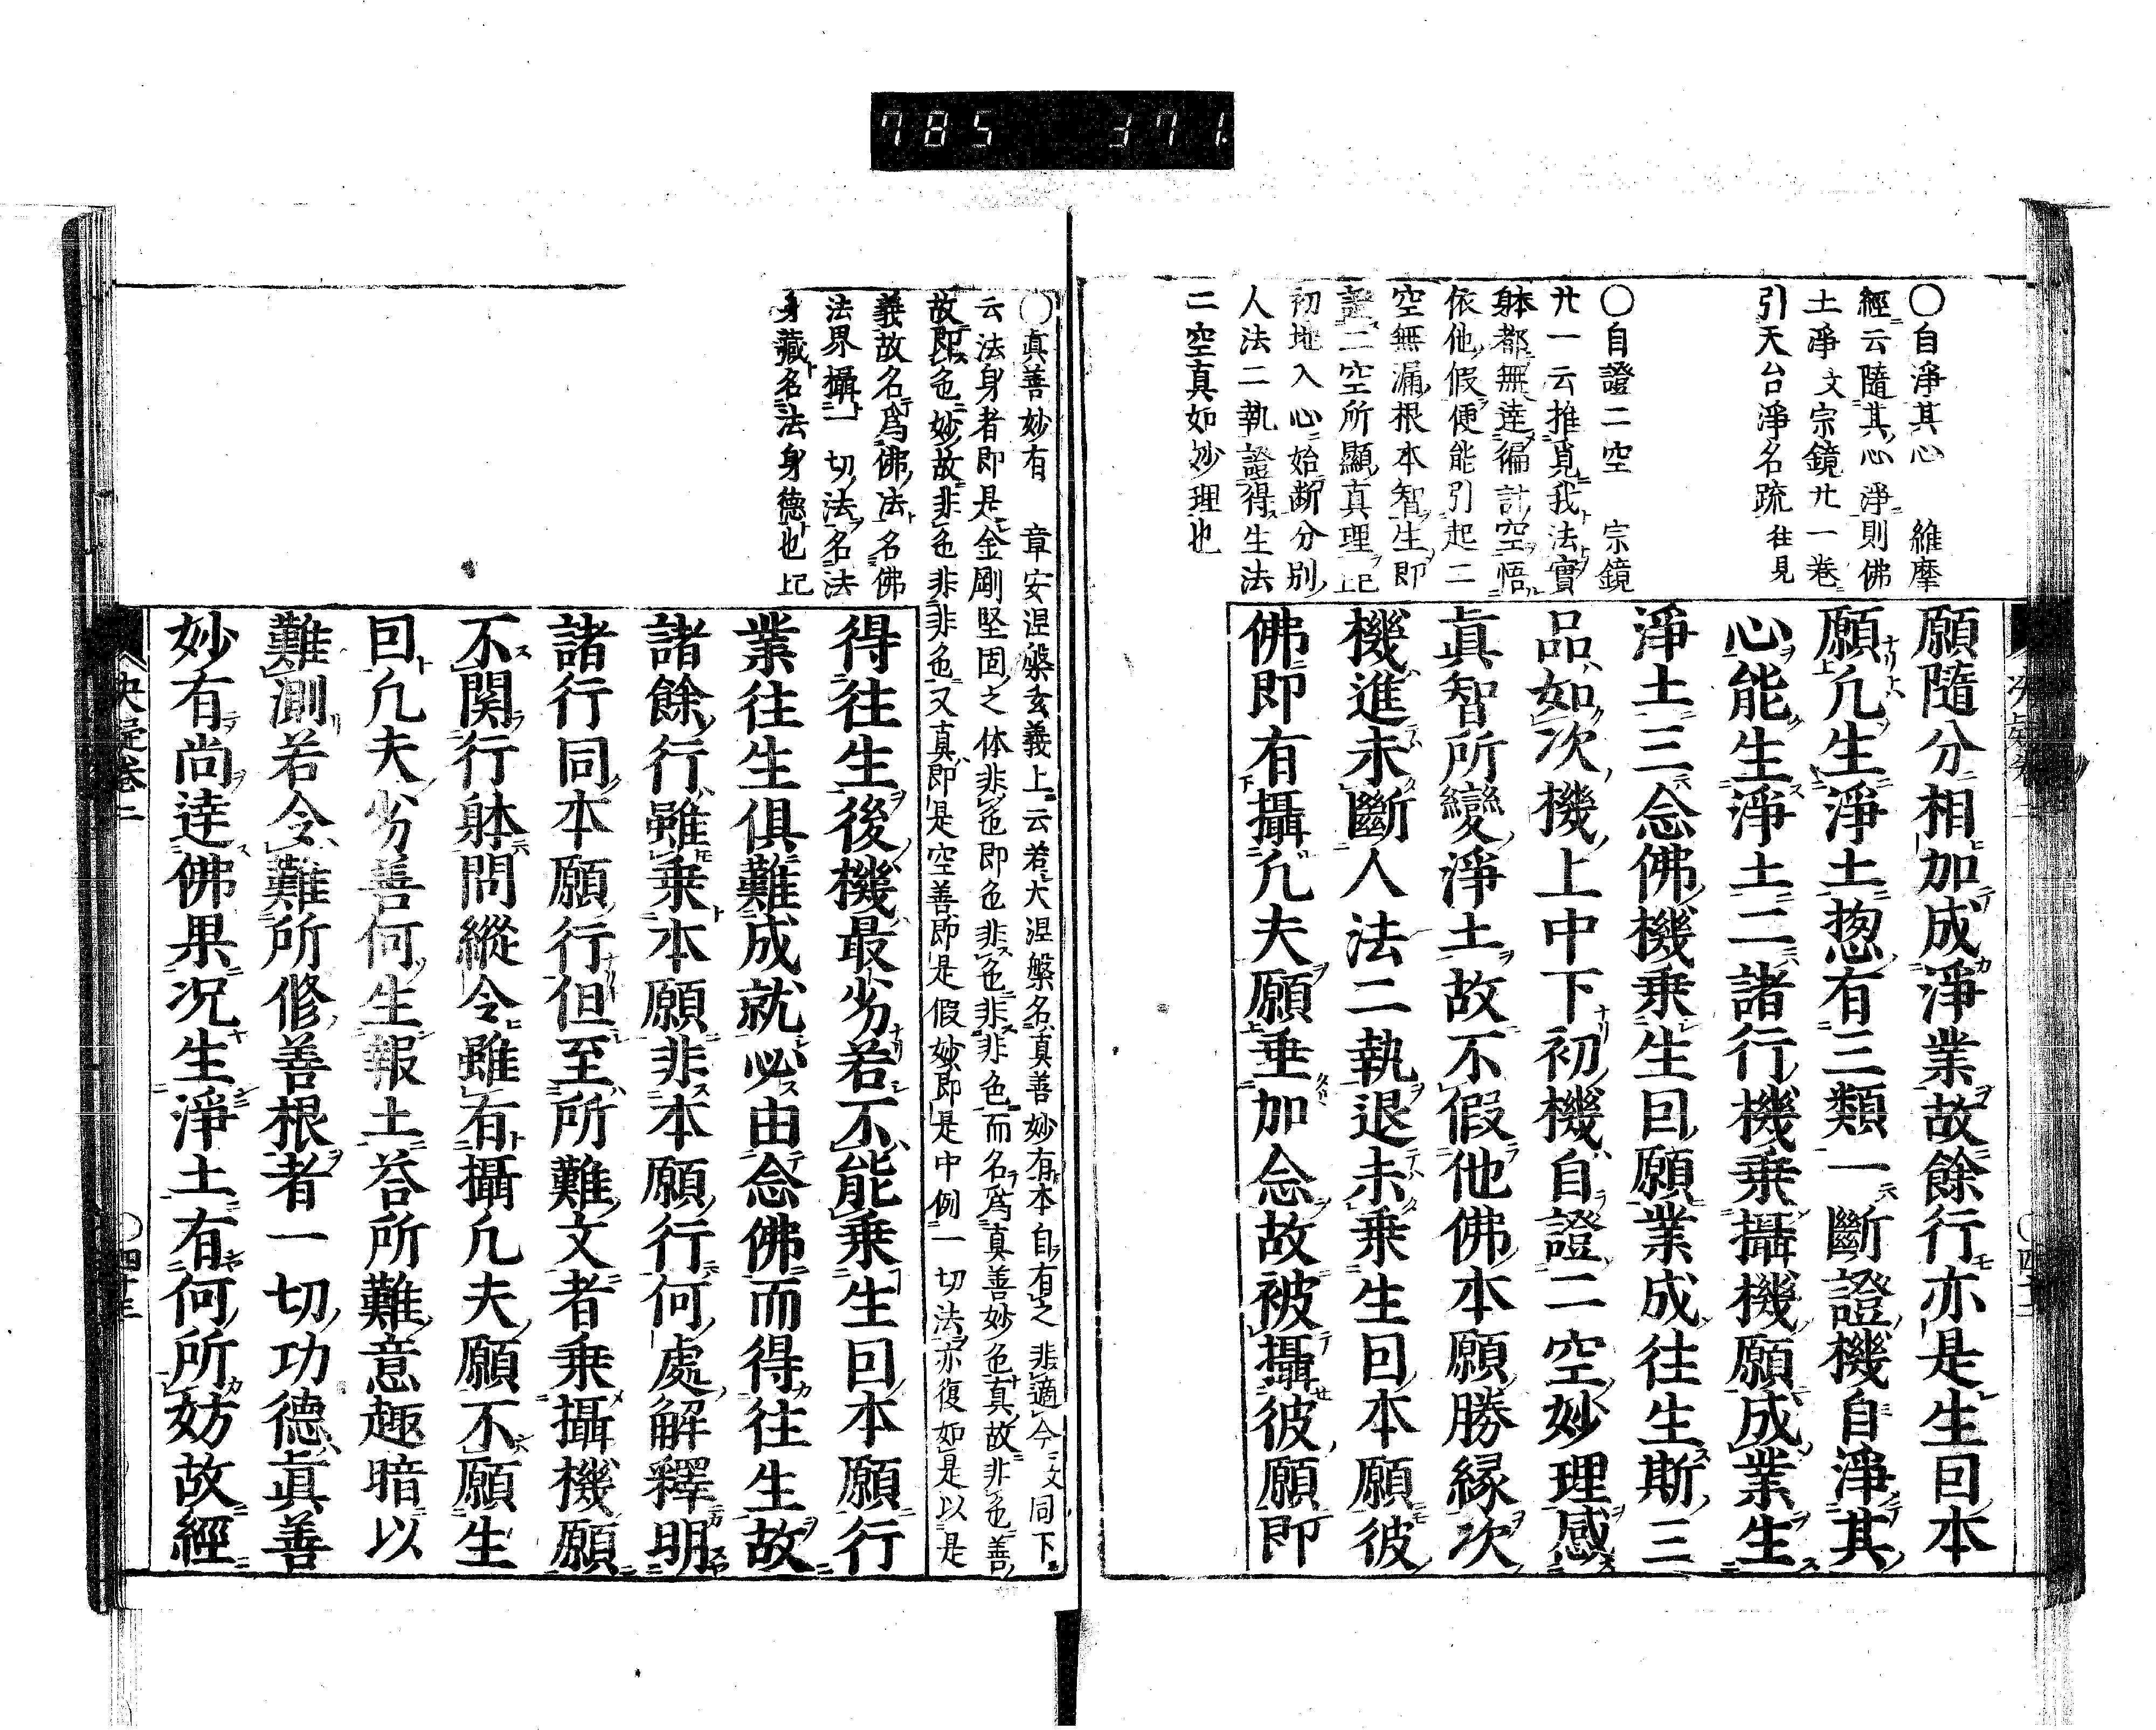 785 371.
〇自淨其心 維摩
經云隨其心淨則佛
土淨文宗鏡廿一卷
引天台淨名疏往見
〇自證二空 宗鏡
廿一云推覓我法實
躰都無達徧計空悟
依他假便能引起二
空無漏根本智生即
證二空所顯真理
初地入心始断分別
人法二執證得生法
二空真如妙理也
願隨分相加成淨業故餘行亦是生回本
願凢生淨土揔有三類一斷證機自淨其
心能生淨土二諸行機乗攝機願成業生
淨土三念佛機乗生回願業成往生斯三
品如次機上中下初機自證二空妙理感
眞智所變淨土故不假他佛本願勝縁次
機進未斷人法二執退未乗生回本願彼
佛即有攝凢夫願垂加念故被攝彼願即
〇真善妙有 章安涅槃玄義上云若大涅槃名真善妙有本自有之非適今文同下
云法身者即是金剛堅固之体非色即色非色非非色而名爲真善妙色真故非色善
故即色妙故非色非非色又真即是空善即是假妙即是中例一切法亦復如是以是
義故名爲佛法名佛
法界攝一切法名法
身藏名法身德也
得往生後機最劣若不能乗生回本願行
業往生俱難成就必由念佛而得往生故
諸餘行雖乗本願非本願行何處解釋明
諸行同本願行但至所難文者乗攝機願
不関行躰問縱令雖有攝凢夫願不願生
回凢夫劣善何生報土荅所難意趣暗以
難測若令難所修善根者一切功德眞善
妙有尚達佛果況生淨土有何所妨故經
決疑卷二
四十三